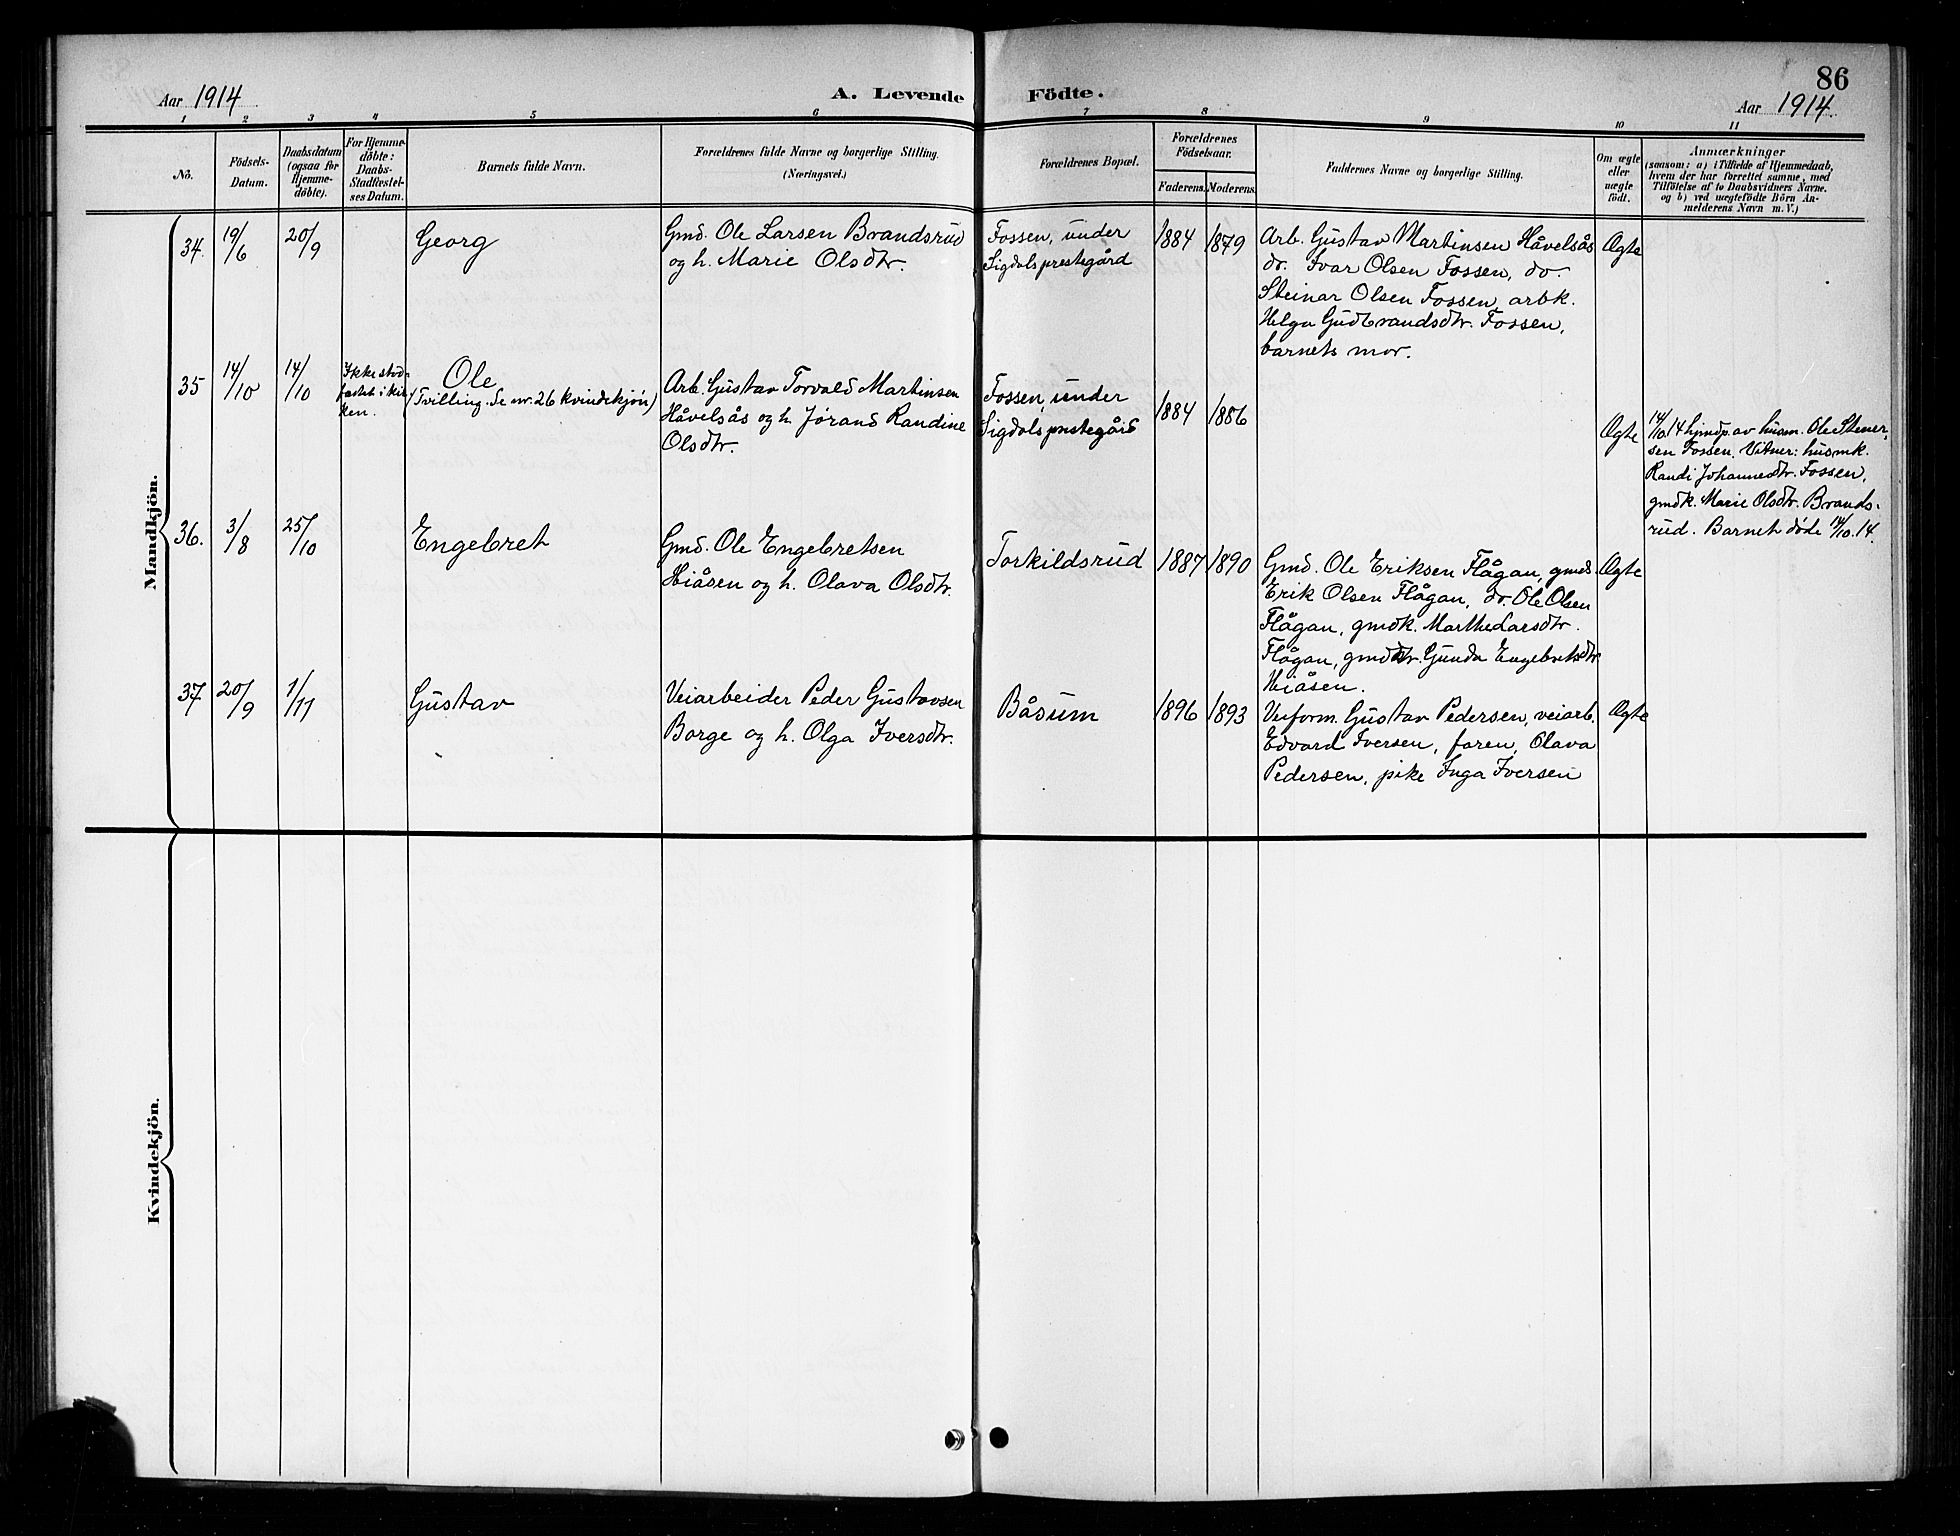 86
Aar 1914
A. Levende Födte.
Aar 1914.
1 2 3 4 5 6 7 8 9 10 11
No.
Födsels-
Datum.
Daabsdatum
(ogsaa for
Hjemme-
döbte).
For Hjemme-
döbte:
Daabs-
Stadfæstel-
ses Datum.
Barnets fulde Navn.
Forældrenes fulde Navne og borgerlige Stilling.
(Næringsvei.)
Forældrenes Bopæl.
Forældrenes
Födselsaar.
Faderens. Moderens.
Faddernes Navne og borgerlige Stilling.
Om ægte
eller
uægte
födt.
Anmærkninger
(saasom: a) i Tilfælde af Hjemmedaab,
hvem der har forrettet samme, med
Tilföielse af to Daabsvidners Navne.
og b) ved uægtefödte Börn An-
melderens Navn m. V.)
Mandkjön.
34. 19/6 20/9
Georg
Gmd. Ole Larsen Brandsrud
og h. Marie Olsdtr.
Fossen, under
Sigdals prestegård
1884 1879
Arb. Gustav Martinsen Håvelsås
do. Ivar Olsen Fossen, do.
Steinar Olsen Fossen, arbk.
Helga Gudbrandsdtr. Fossen,
barnets mor.
Ægte
35 14/10 14/10
Ikke stad-
fæstet i kir-
ken.
Ole
(Tvilling. Se nr. 26 kvindekjön)
Arb. Gustav Torvald Martinsen
Håvelsås og h. Jørand Randine
Olsdtr.
Fossen, under
Sigdals prestegård
1884 1886
Ægte
14/10.14 hjmdp. av husm. Ole Stener-
sen Fossen. Vitner: husmk.
Randi Johannesdtr. Fossen,
gmdk. Marie Olsdtr. Brands-
rud. Barnet døde 14/10.14.
36. 3/8 25/10
Engebret
Gmd. Ole Engebretsen
Hiåsen og h. Olava Olsdtr.
Torkildsrud
1887 1890
Gmd. Ole Eriksen Flågan, gmds
Erik Olsen Flågan, do. Ole Olsen
Flågan, gmdk. Marthe Larsdtr.
Flågan, gmddtr. Gunda Engebretsdtr.
Hiåsen.
Ægte
37 20/9 1/11
Gustav
Veiarbeider Peder Gustavsen
Borge og h. Olga Iversdtr.
Båsum
1896 1893
Veiform. Gustav Pedersen, veiarb.
Edvard Iversen, faren, Olava
Pedersen, pike Inga Iversen
Ægte
Kvindekjön.